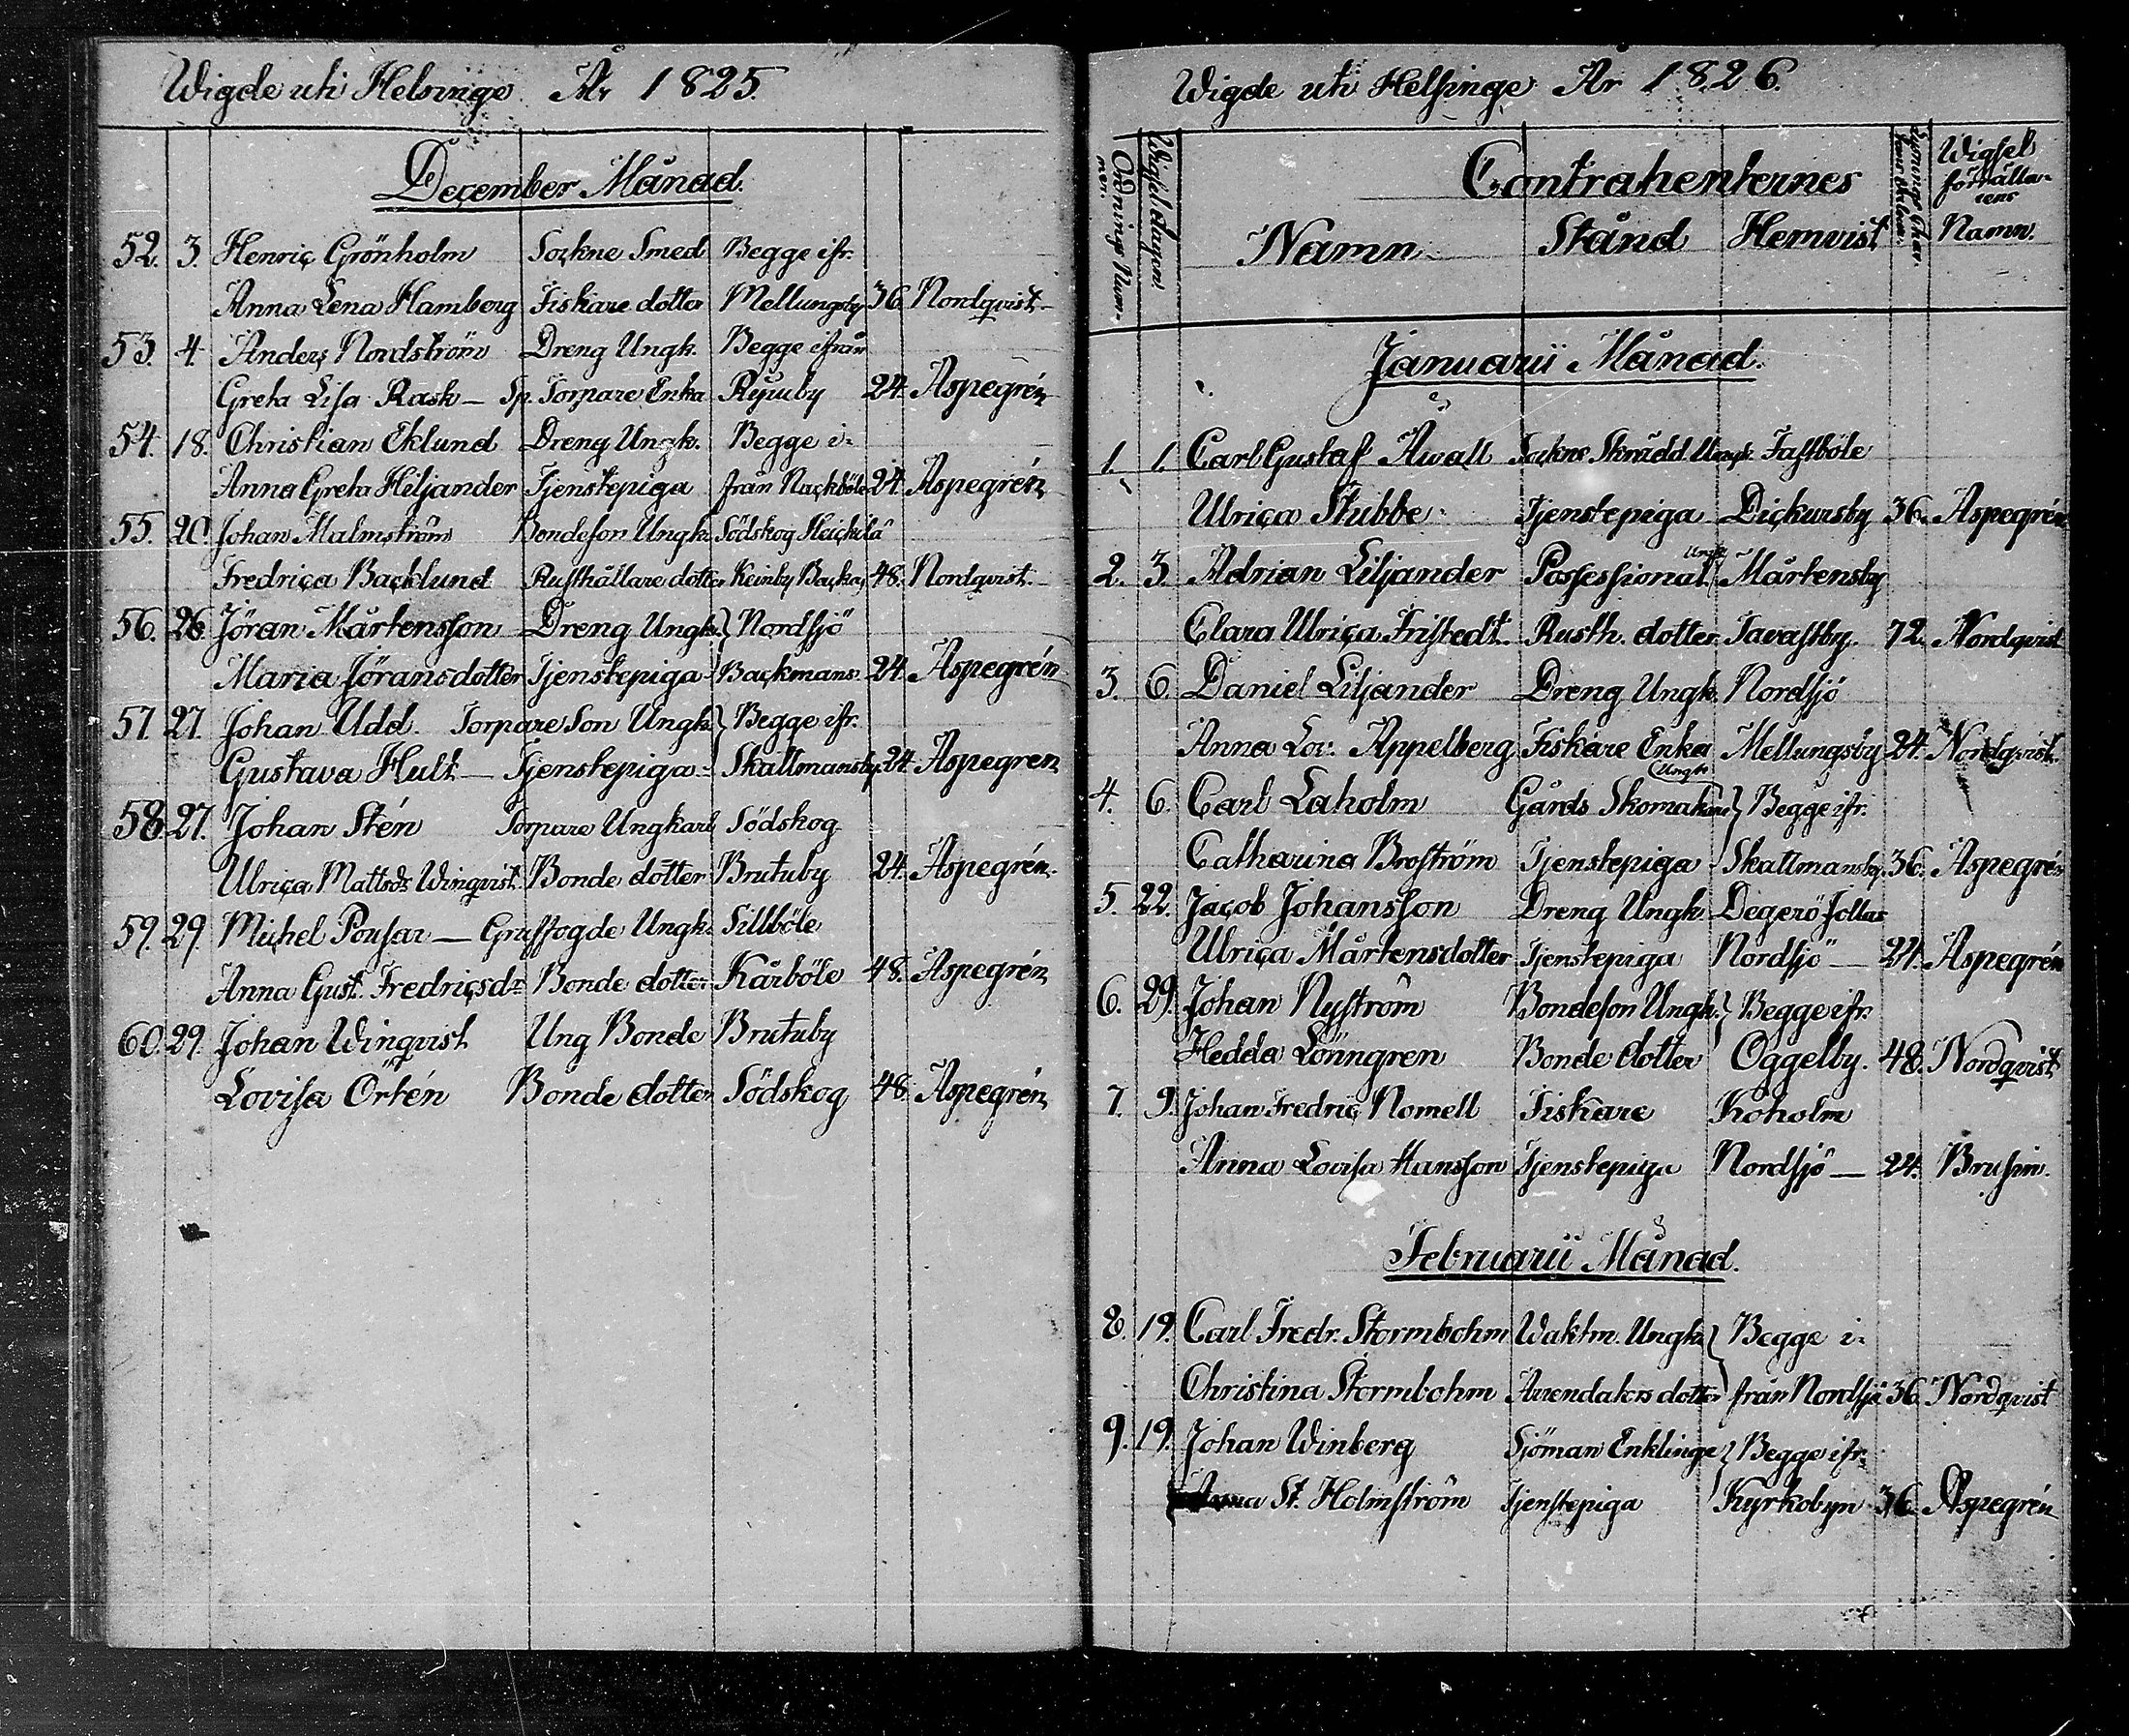 Wigde uti Helsinge År 1825.
December Månad.
52. 3. Henric Grönholm Sockne Smed Begge ifr.
Anna Lena Hamberg Fiskare dotter Mellungsby 36. Nordqvist
53. 4. Anders Nordström Dreng Ungk. Begge ifrån
Greta Lisa Rask — Sp. Torpare Enka 24. Aspegrén
54. 18. Christian Eklund Dreng Ungk. Begge i-
Anna Greta Hiljander Tjenstepiga från Nackböle 24. Aspegrén
55. 20. Johan Malmström Bondeson Ungk. Södskog Heickilä
Fredrica Backlund Rusthållare dotter Keinby Backas 48. Nordqvist
56. 26. Jöran Mårtensson Dreng Ungk. Nordsjö
Maria Jöransdotter Tjenstepiga Backmans 24. Aspegrén
57. 27. Johan Udd. Torpare Son Ungk. Begge ifr.
Gustava Hult — Tjenstepiga Skattmansby 24. Aspegren
58. 27. Johan Stén Torpare Ungkarl Södskog
Ulrica Mattsdr Winqvist. Bonde dotter Brutuby 24. Aspegrén.
59. 29. Michel Ponsar — Gruffogde Ungk. Sillböle
Anna Gust. Fredricsdr Bonde dotter Kårböle 48. Aspegrén
60. 29. Johan Winqvist Ung Bonde Brutuby
Lovisa Örtén Bonde dotter Södskog 48. Aspegrén
Wigde uti Helsinge År 1826.
Ordnings Num-mer.
Wigsel dagen
Contrahenternes
Namn Stånd Hemvist
Wigsel
förrätta-
rens
Namn.
Januarii Månad.
1. 1. Carl Gustaf Åwall Sockne Skrädd. Ungk. Fastböle
Ulrica Stubbe Tjenstepiga Dickursby 36. Aspegrén
2. 3. Adrian Liljander Possessionat Ungk. Mårtensby
Clara Ulrica Fristedt Rusth. dotter Tavastby. 72. Nordqvist
3. 6. Daniel Liljander Dreng Ungk. Nordsjö
Anna Lov. Appelberg Fiskare Enka Mellungsby 24. Nordqvist.
4. 6. Carl Laholm Gårds Skomakare Ungk. Begge ifr.
Catharina Broström Tjenstepiga Skattmansby. 36. Aspegrén
5. 22. Jacob Johansson Dreng Ungk. Degerö Jollas
Ulrica Mårtensdotter Tjenstepiga Nordsjö — 24. Aspegrén
6. 29. Johan Nyström Bondeson Ungk. Begge ifr.
Hedda Lönngren Bonde dotter Oggelby. 48. Nordqvist
7. 9. Johan Fredric Nomell Fiskare Koholm
Anna Lovisa Hansson Tjenstepiga Nordsjö — 24. Brusin.
Februarii Månad.
8. 19. Carl Fredr. Stormbohm Waktm. Ungk. Begge i-
Christina Stormbohm Arrendators dotter från Nordsjö 36. Nordqvist
9. 19. Johan Winberg Sjöman Enklinge Begge ifr.
Anna St. Holmström Tjenstepiga Kyrkobyn 36. Aspegrén